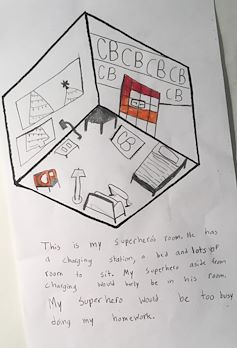 CB CB CB CB
CB CB
CB
This is my superhero's room. He has
a charging station, a bed and lots of
room to sit. My superhero aside from
charging would barely be in his room.
My superhero would be too busy
doing my homework.